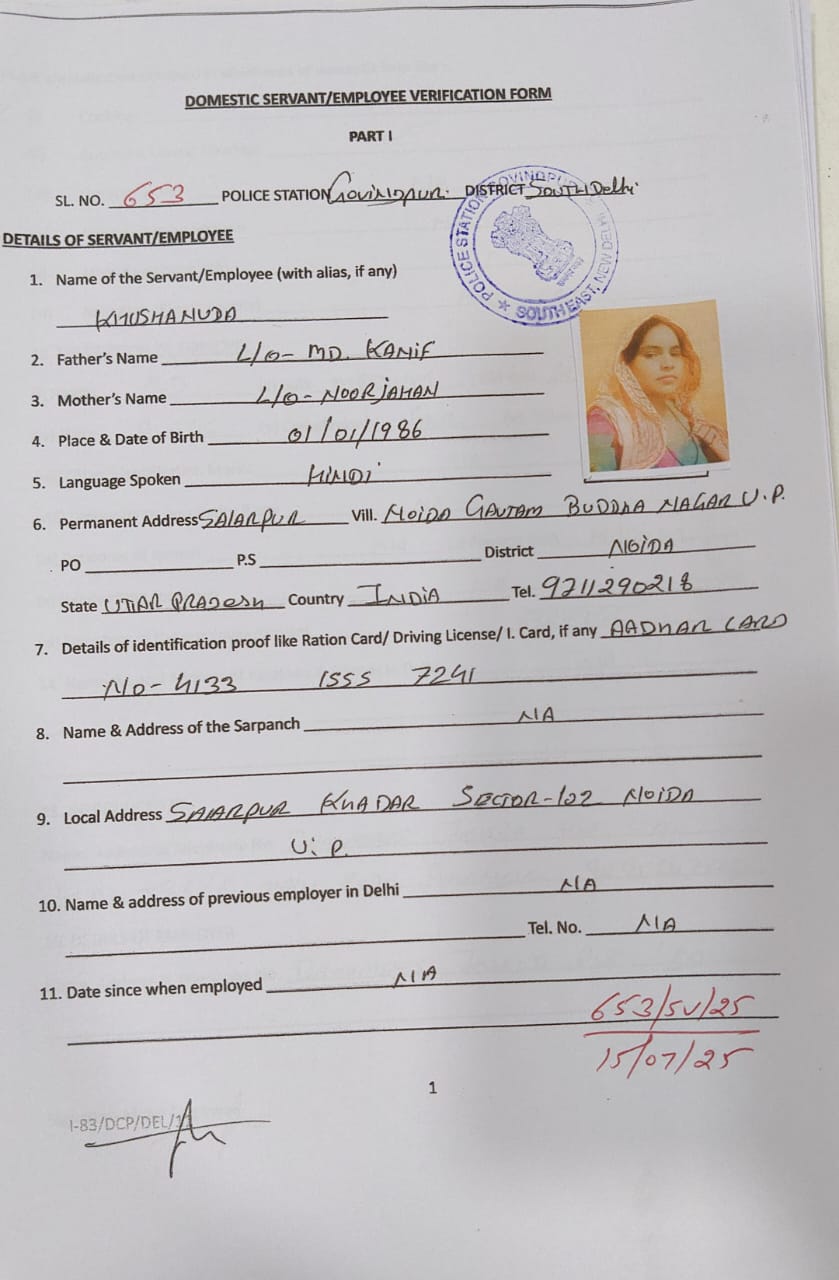 DOMESTIC SERVANT/EMPLOYEE VERIFICATION FORM
PART I
SL. NO. 653 POLICE STATION Govindpur. DISTRICT South Delhi
POLICE STATION GOVINDPURI
SOUTH EAST, NEW DELHI
DETAILS OF SERVANT/EMPLOYEE
1. Name of the Servant/Employee (with alias, if any)
KHUSHANUDA
2. Father's Name L/O- MD. KANIF
3. Mother's Name L/O- NOORJAHAN
4. Place & Date of Birth 01/01/1986
5. Language Spoken HINDI
6. Permanent Address SALARPUR Vill. NOIDA GAUTAM BUDDHA NAGAR U.P.
PO P.S District NOIDA
State UTTAR PRADESH Country INDIA Tel. 9711290218
7. Details of identification proof like Ration Card/ Driving License/ I. Card, if any AADHAR CARD
NO- 4133 1555 7241
8. Name & Address of the Sarpanch NIA
9. Local Address SALARPUR KHADAR SECTOR-102 NOIDA
U.P.
10. Name & address of previous employer in Delhi NIA
Tel. No. NIA
11. Date since when employed NIA
653/SV/25
15/07/25
1
I-83/DCP/DEL/